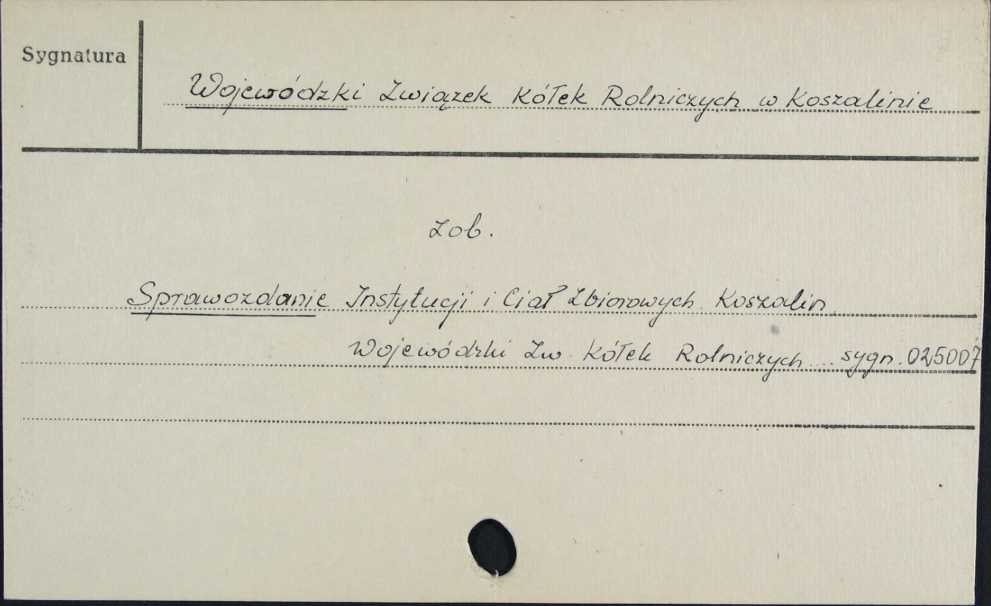 Sygnatura
Wojewódzki Związek Kółek Rolniczych w Koszalinie
Zob.
Sprawozdanie Instytucji i Ciał Zbiorowych. Koszalin.
Wojewódzki Zw. Kółek Rolniczych sygn. 025007